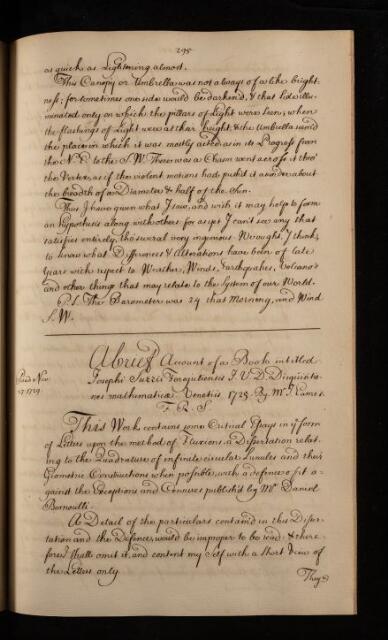 295
as quick as Lightning almost.
This Canopy or Umbrella was not always of a like bright-
ness; for sometimes one side would be darkend, & that side illu-
minated only on which the pillars of Light were seen; when
the flashings of Light were at their height, & the Umbrella
the place in which it was mostly acted as in its Progress from
the N.E. to the S.W. There was a Chasm went across it thro'
the Vertex, as if the violent motions had pushd it asunder about
the breadth of a Diameter & half of the Sun.
Thus I have given what I saw, and wish it may help to form
an Hypothesis along with others for as yet I can't see any that
satisfies entirely, tho several very ingenious. We ought, I think,
to know what Differences & Alterations have been of late
Years with respect to Weather, Winds, Earthquakes, Volcano's
and other things that may relate to the System of our World.
P.S. The Barometer was 29 that Morning, and Wind
S.W.
A brief Account of a Book intitled
Read Nov
27. 1729
Josephi Suzzi Forojuliensis J.V.D. Disquisitio-
nes mathematicæ. Venetiis 1725. By Mr J. Eames
F.R.S
This Work contains some Critical Essays in ye form
of Letters upon the method of Fluxions, a Dissertation relat-
ing to the Quadrature of infinite circular Lunules and their
Geometric Constructions when possible, with a defence of it a-
gainst the Exceptions and Censures publish'd by Mr. Daniel
Bernoulli.
A Detail of the particulars containd in this Disser-
tation and the Defence, would be improper to be read, & there-
fore I shall omit it, and content my Self with a short View of
the Letters only.
They